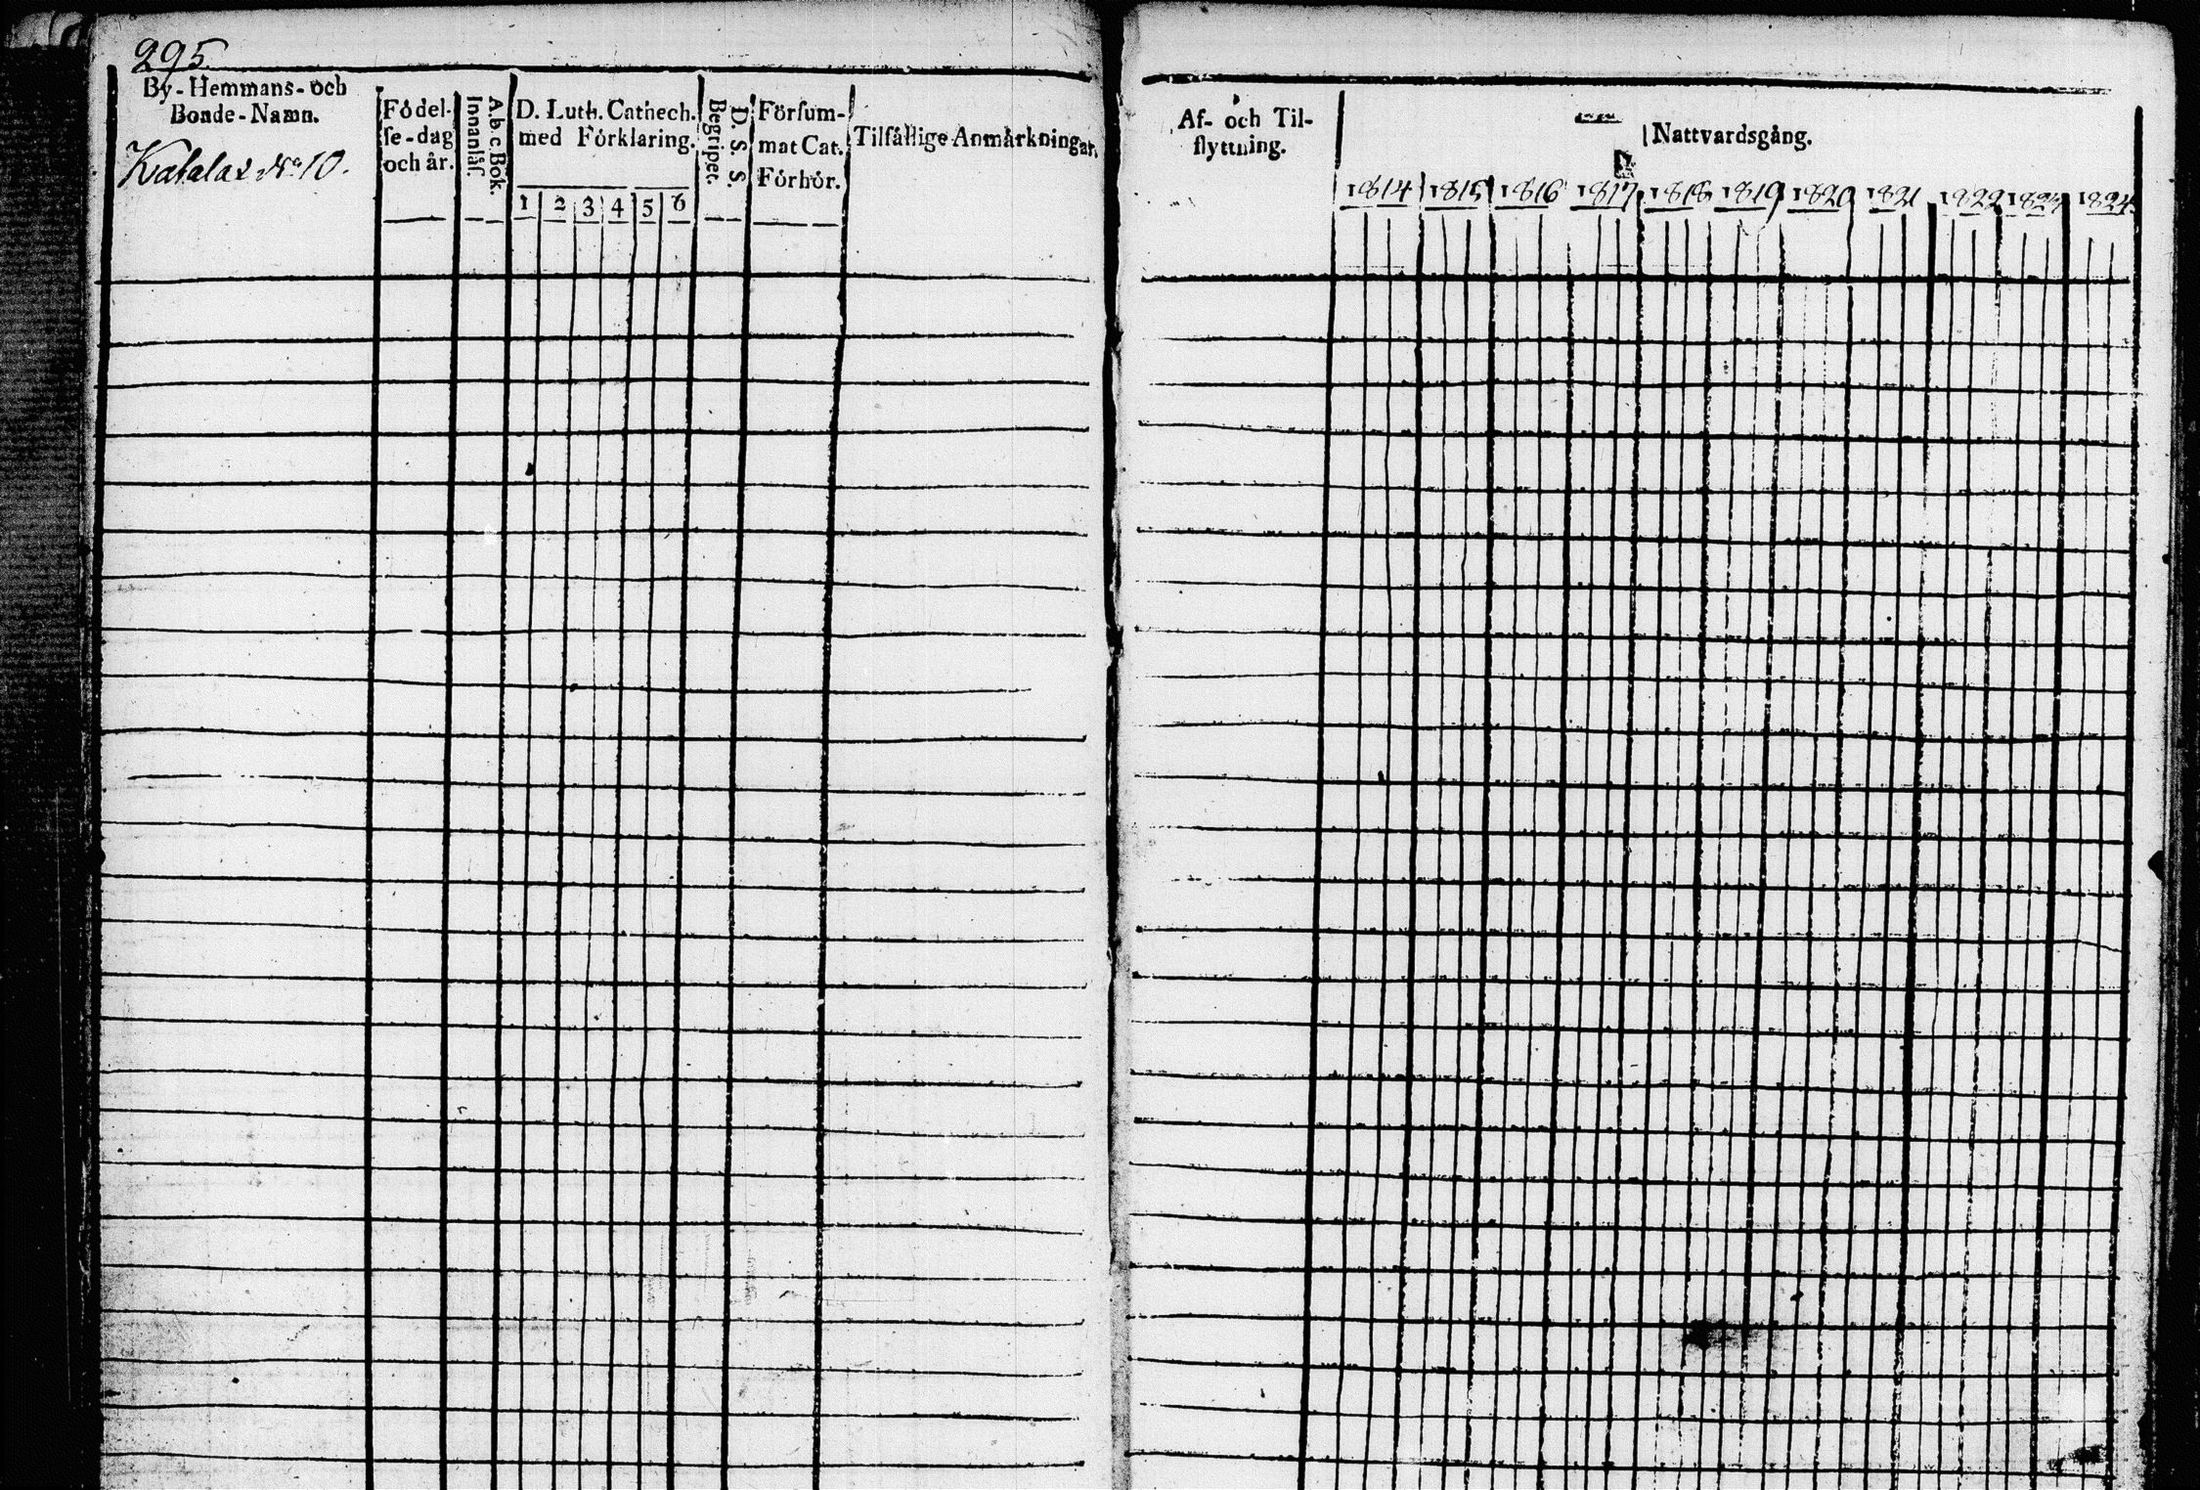 295
By-Hemmans-och
Bonde-Namn.
No 10.
Födel-
se-dag
och år.
A.b.c Bok.
Innanläs.
D. Luth. Cathech.
med Förklaring.
1 2 3 4 5 6
D. S. S.
Begriper.
Försum-
mat Cat.
Förhör.
Tilfällige Anmärkningar.
Af- och Til-
flyttning.
Nattvardsgång.
1814 1815 1816 1817 1818 1819 1820 1821 1822 1823 1824